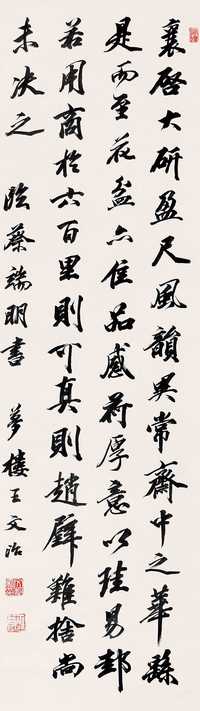 襄啓大研盈尺風韻異常齋中之華繇
是而至花盆亦佳品感荷厚意以珪易邽
若用商於六百里則可真則趙璧難捨尚
未決之 臨蔡端明書 夢樓王文治